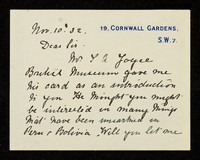 19, CORNWALL GARDENS,
S.W. 7.
Nov. 10th 32.
Dear Sir.
Mr T. A. Joyce
British Museum gave me
his card as an introduction
to you. He thought you might
be interested in many things
that have been unearthed in
Peru & Bolivia. Will you let me